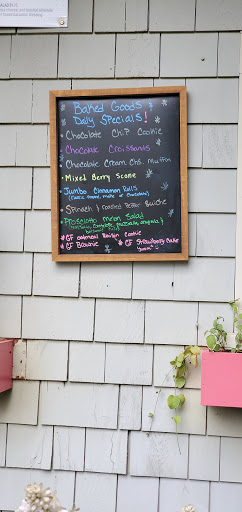 Baked Goods &
Daily Specials!
Chocolate Chip Cookie
Chocolate Croissants
Chocolate Cream Chs. Muffin
Mixed Berry Scone
Jumbo Cinnamon Rolls
Spinach & roasted Pepper Quiche
Prosciutto melon Salad
*GF oatmeal Raisin Cookie
*GF Brownie *GF Strawberry Cake